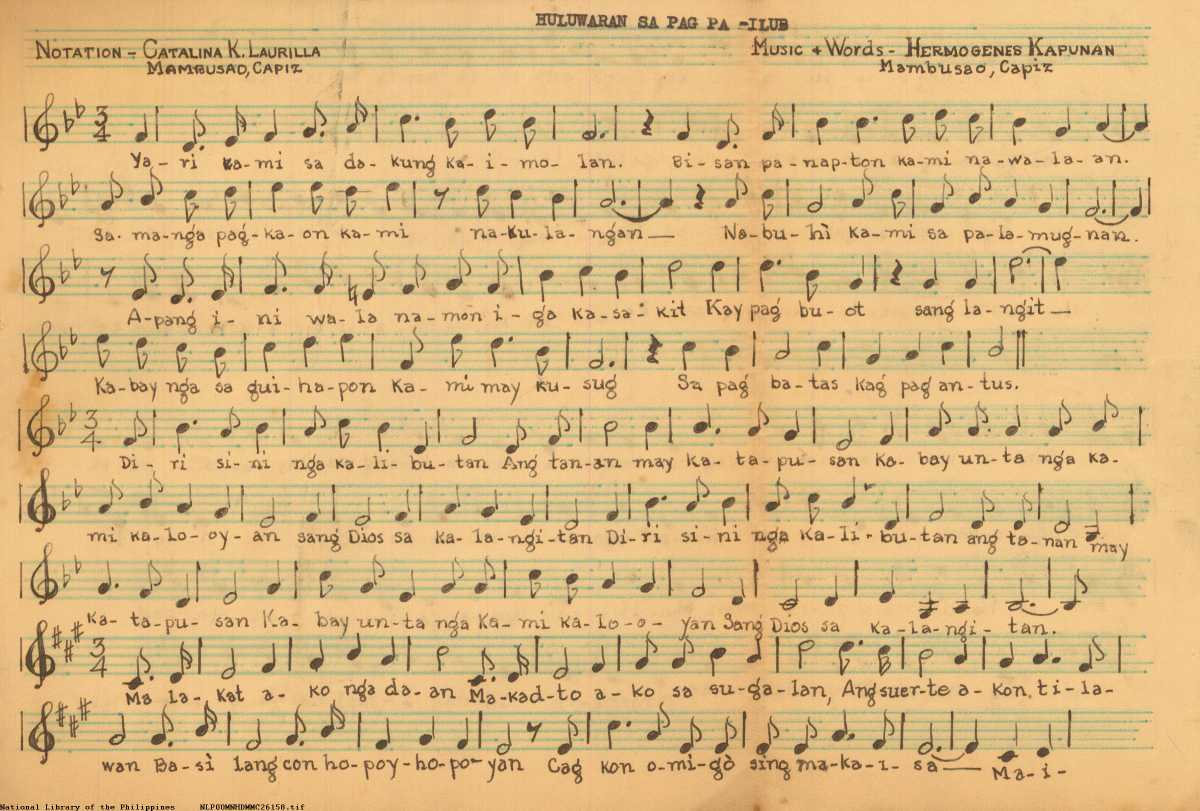 HULUWARAN SA PAG PA -ILUB
NOTATION - CATALINA K. LAURILLA
MAMBUSAO, CAPIZ
MUSIC + WORDS - HERMOGENES KAPUNAN
MAMBUSAO, CAPIZ
3/4
Ya-ri ka-mi sa da-kung ka-i-mo-lan. Bi-san pa-nap-ton ka-mi na-wa-la-an.
Sa-ma-nga pag-ka-on ka-mi na-ku-la-ngan— Na-bu-hì ka-mi sa pa-la-mug-nan.
A-pang i-ni wa-la na-mon i-ga ka-sa-kit Kay pag bu-ot sang la-ngit—
Ka-bay nga sa gui-ha-pon ka-mi may ku-sug Sa pag ba-tas kag pag an-tus.
3/4
Di-ri si-ni nga ka-li-bu-tan Ang tan-an may ka-ta-pu-san ka-bay un-ta nga ka-
mi ka-lo-oy-an sang Dios sa ka-la-ngi-tan Di-ri si-ni nga ka-li-bu-tan ang ta-nan may
ka-ta-pu-san Ka-bay un-ta nga ka-mi ka-lo-o-yan Sang Dios sa ka-la-ngi-tan.
3/4
Ma la-kat a-ko nga da-an Ma-kad-to a-ko sa su-ga-lan, Ang suer-te a-kon ti-la-
wan Ba-sì lang con ho-poy-ho-po-yan Cag kon o-mi-gò sing ma-ka-i-sa— Ma-i-
National Library of the Philippines NLP00MNHDMMC26150.tif